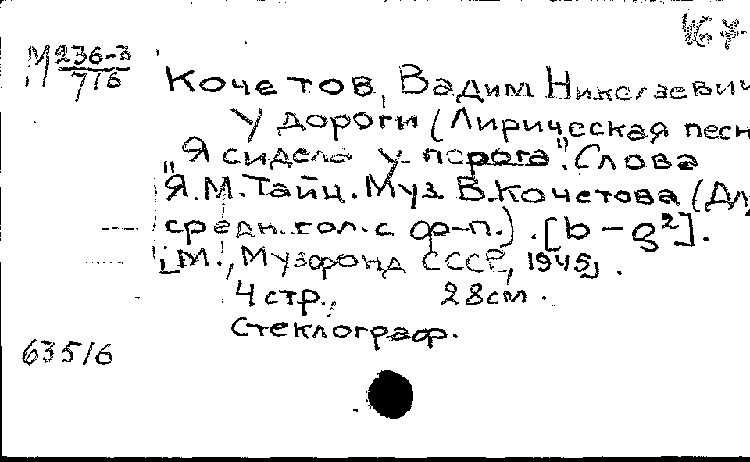 М 236-3
7/6
Кочетов, Вадим Николаевич
У дороги (Лирическая песн
"Я сидела у порога". Слова
Я.М. Тайц. Муз. В. Кочетова (Дл
средн. гол. с ф-п.). [b – g²].
[М., Музфонд СССР, 1945].
4 стр., 28 см.
Стеклограф.
635/6